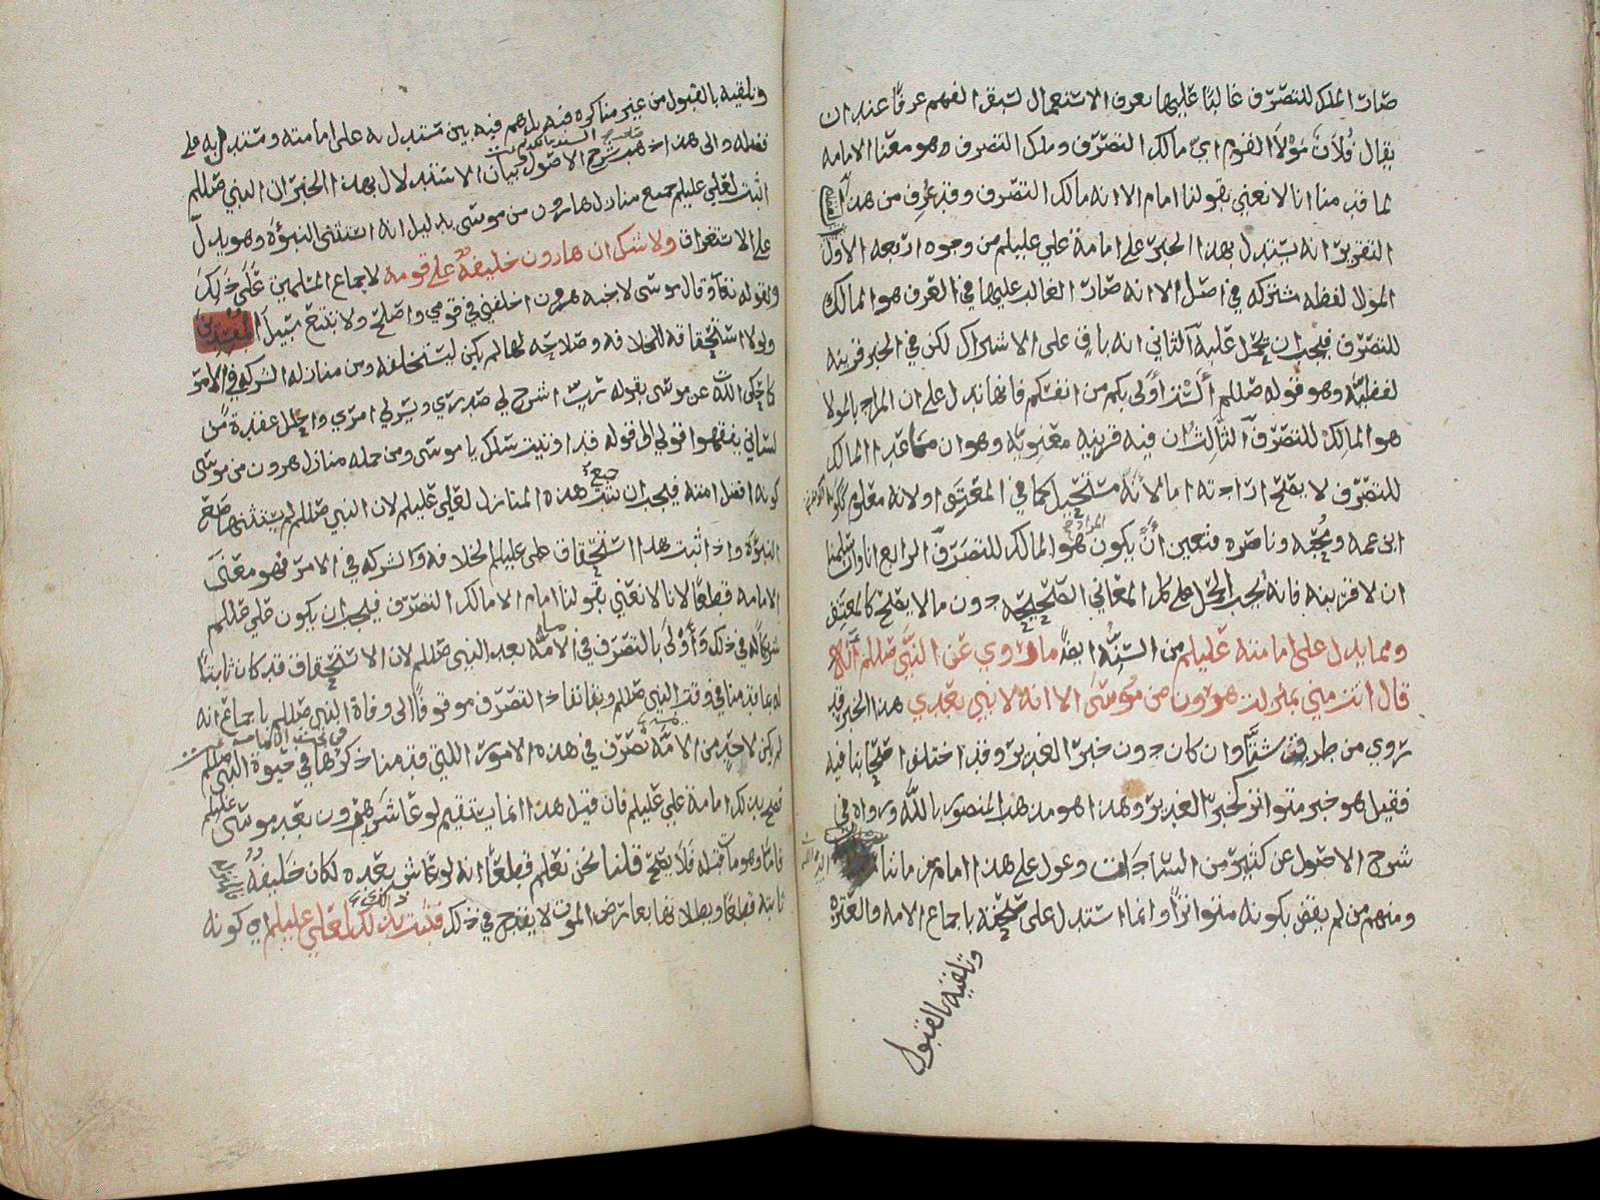 صار المالك للتصرف غالبا عليها بعرف الاستعمال لسبق الفهم عرفا عند ان
يقال فُلَانٌ مَوْلَا القوم اي مالك التصرف وملك التصرف وهو معنا الامامه
لما قدمنا انا لا نعني بقولنا امام الا انه مالك التصرف وقد عُرِف من هذا
التقرير انه يستدل بهذا الخبر على امامة علي عليلم من وجوه اربعه الاول
المولى لفظه مشتركه في اصل الا انه صار الغالب عليها في العرف هو المالك
للتصرف فيجب ان يحمل عليه الثاني انه باقٍ على الاشتراك لكن في الخبر قرينه
لفظيه وهو قوله صللم أَلَسْتُ أَوْلَى بكم من انفسكم فانها تدل على ان المراد بالمولا
هو المالك للتصرف الثالث ان فيه قرينه معنويه وهو ان ما عدا المالك
للتصرف لا يصلح ارادته اما لأنه مستحيل كما في المعتِق او لانه معلوم ككونه
ابن عمه ومُحِبّه وناصره فتعين أَنْ يكون المراد هو المالك للتصرف الرابع انا وان سلمنا
ان لا قرينه فانه يجب الحمل على كل المعاني الصحيحه دون ما لا يصلح كالمعتِق
ومما يدل على امامته عليلم من السنه ايضًا ما روي عن النبي صللم انه
قال انت مني بمنزلة هرون من مُوسَى الا انه لا نبي بعدي هذا الخبر قد
روي من طرق شتَّا وان كان دون خبر الغدير وقد اختلف اصحابنا فيه
فقيل هو خبر متواتر كخبر الغدير وهذا هو مذهب المنصور بالله ورواه في
شرح الاصول عن كثير من السادات وعول على هذا امام زماننا
ومنهم من لم يقض بكونه متواترًا وانما استدل على صحته باجماع الامه والعتره
وتلقيه بالقبول
وتلقيه بالقبول من غير مناكره فيه بل هم فيه بين مستدل به على امامته ومستدل به على
فضله والى هذا ذهب شرح الاصول وبيان الاستدلال بهذا الخبر ان النبي صللم
اثبت لعلي عليلم جميع منازل هارون من موسى بدليل انه استثنى النبوّه وهو يدل
على الاستغراق ولا شك ان هارون خليفةٌ على قومه لاجماع المسلمين عَلَى ذَلِكَ
ولقوله تعا وقال موسى لاخيه هرون اخلفني في قومي واصلح ولا تتبع سبيل المفسدين
ولولا استحقاقه للخلافه وصلاحه لها لم يكن ليستخلفه ومن منازله الشركه في الامر
كما حكى الله عن موسى بقوله رب اشرح لي صدري ويسر لي امري واحلل عقدة من
لساني يفقهوا قولي الى قوله قد اوتيت سئلك يا موسى ومن جمله منازل هرون من موسى
كونه افضل امته فيجب ان تثبت جميع هذه المنازل لعلي عليلم لان النبي صللم لم يستثن الا
النبوّه واذا ثبت هذا استحقاق علي عليلم الخلافه والشركه في الامر فهو معنَى
الامامه قطعًا لانا لا نعني بقولنا امام الا مالك التصرف فيجب ان يكون علي عليلم
شريكًا له في ذلك وَأَوْلَى بالتصرف في الامّه بعد النبي صللم لان الاستحقاق قد كان ثابتًا
له بما قدمنا في وقت النبي صللم وبقا نفاذ التصرف موقوفًا الى وفاة النبي صللم باجماع انه
لم يكن لاحدٍ من الامّه تصرّف في هذه الامور اللتي قدمنا ذكرها في حيوة النبي صللم
فصح بذلك امامة علي عليلم فان قيل هذا انما يستقيم لو عاش هرون بعد موسى عليلم
فامّا وهو مات قبله فلا يصحّ قلنا نحن نعلم قطعًا انه لو عاش بعده لكان خَليفةً
ثابته قطعًا وبطلانها بعارض الموت لا يقدح في ذلك فثبت بذلك لعلي عليلم اي كونه